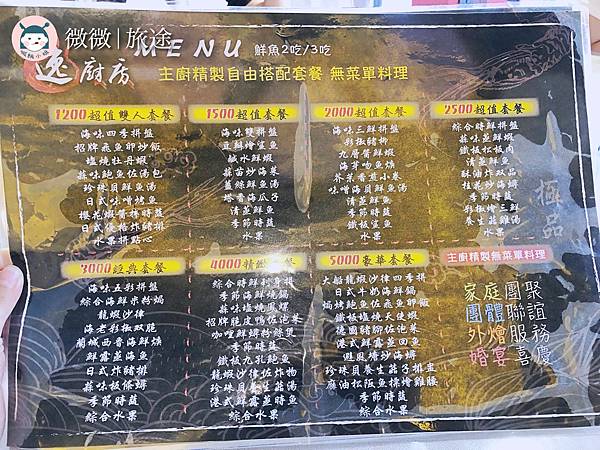 微微|旅途
MENU 鮮魚2吃/3吃
逸廚房
主廚精製自由搭配套餐 無菜單料理
1200超值雙人套餐
海味四季拼盤
招牌飛魚卵炒飯
塩燒牡丹蝦
蒜味鮑魚佐湯包
珍珠貝鮮魚湯
日式味噌烤魚
櫻花蝦醬棒時蔬
日式優格炸豬排
水果拼點心
1500超值套餐
海味雙拼盤
豆瓣燴鯊魚
鹹水鮮蝦
蒜苗炒海菜
蓋絲鮮魚湯
塔香海瓜子
清蒸鮮魚
季節時蔬
水果
2000超值套餐
海味三鮮拼盤
彩椒豬排
九層醬鮮蝦
海芽吻魚煥
芥菜香煎小卷
味噌海貝鮮魚湯
鐵板鯊魚
季節時蔬
水果
2500超值套餐
綜合時鮮拼盤
蒜味蒸鮮蝦
鐵板松板肉
清蒸鮮魚
酥油炸双品
桂花炒海蟳
季節時蔬
彩椒燴三鮮
養生菇雞湯
水果
極品
3000經典套餐
海味五彩拼盤
綜合海鮮米粉焗
龍蝦沙律
海老彩椒双脆
蘭城西魯海鮮燥
鮮露蒸海魚
日式炸豬排
蒜味板條蟳
季節時蔬
綜合水果
季節海鮮燒鍋
蒜味塩燒鳳螺
招牌脆皮鴨佐泡菜
咖哩鮮蟳粉絲煲
季節時蔬
鐵板九孔鮑魚
龍蝦沙律佐炸物
珍珠貝養生菇湯
港式鮮露蒸時魚
綜合水果
5000豪華套餐
大船龍蝦沙律四季拼
日式牛奶海鮮鍋
焗烤鮑魚佐飛魚卵飯
鐵板塩燒大使蝦
德國豬腳佐泡菜
港式鮮露蒸四回魚
避風塘炒海蟳
珍珠貝養生菇子排盅
麻油松阪魚標燴雞腰
季節時蔬
綜合水果
主廚精製無菜單料理
家庭團聚
團體聯誼
外燴服務
婚宴喜慶